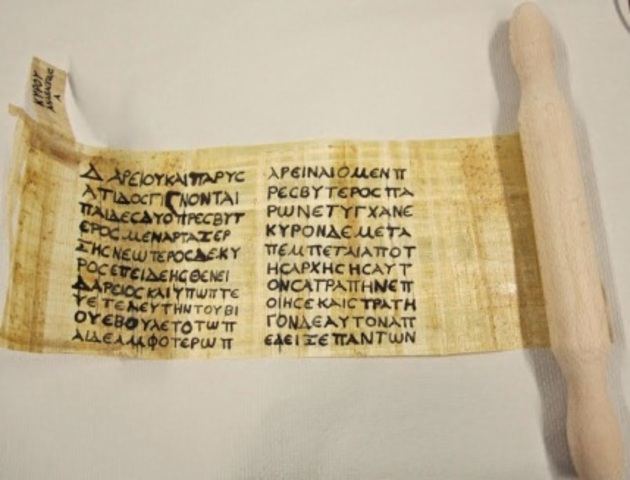 ΚΥΡΟΥ
Α
ΔΑΡΕΙΟΥΚΑΙΠΑΡΥϹ
ΑΤΙΔΟϹΓΙΓΝΟΝΤΑΙ
ΠΑΙΔΕϹΔΥΟΠΡΕϹΒΥΤ
ΕΡΟϹΜΕΝΑΡΤΑΞΕΡ
ΞΗϹΝΕΩΤΕΡΟϹΔΕΚΥ
ΡΟϹΕΠΕΙΔΕΗϹΘΕΝΕΙ
ΔΑΡΕΙΟϹΚΑΙΥΠΩΠΤΕ
ΥΕΤΕΛΕΥΤΗΝΤΟΥΒΙ
ΟΥΕΒΟΥΛΕΤΟΤΩΠ
ΑΙΔΕΑΜΦΟΤΕΡΩΠ
ΑΡΕΙΝΑΙΟΜΕΝΠ
ΡΕϹΒΥΤΕΡΟϹΠΑ
ΡΩΝΕΤΥΓΧΑΝΕ
ΚΥΡΟΝΔΕΜΕΤΑ
ΠΕΜΠΕΤΑΙΑΠΟΤ
ΗϹΑΡΧΗϹΗϹΑΥΤ
ΟΝϹΑΤΡΑΠΗΝΕΠ
ΟΙΗϹΕΚΑΙϹΤΡΑΤΗ
ΓΟΝΔΕΑΥΤΟΝΑΠ
ΕΔΕΙΞΕΠΑΝΤΩΝ